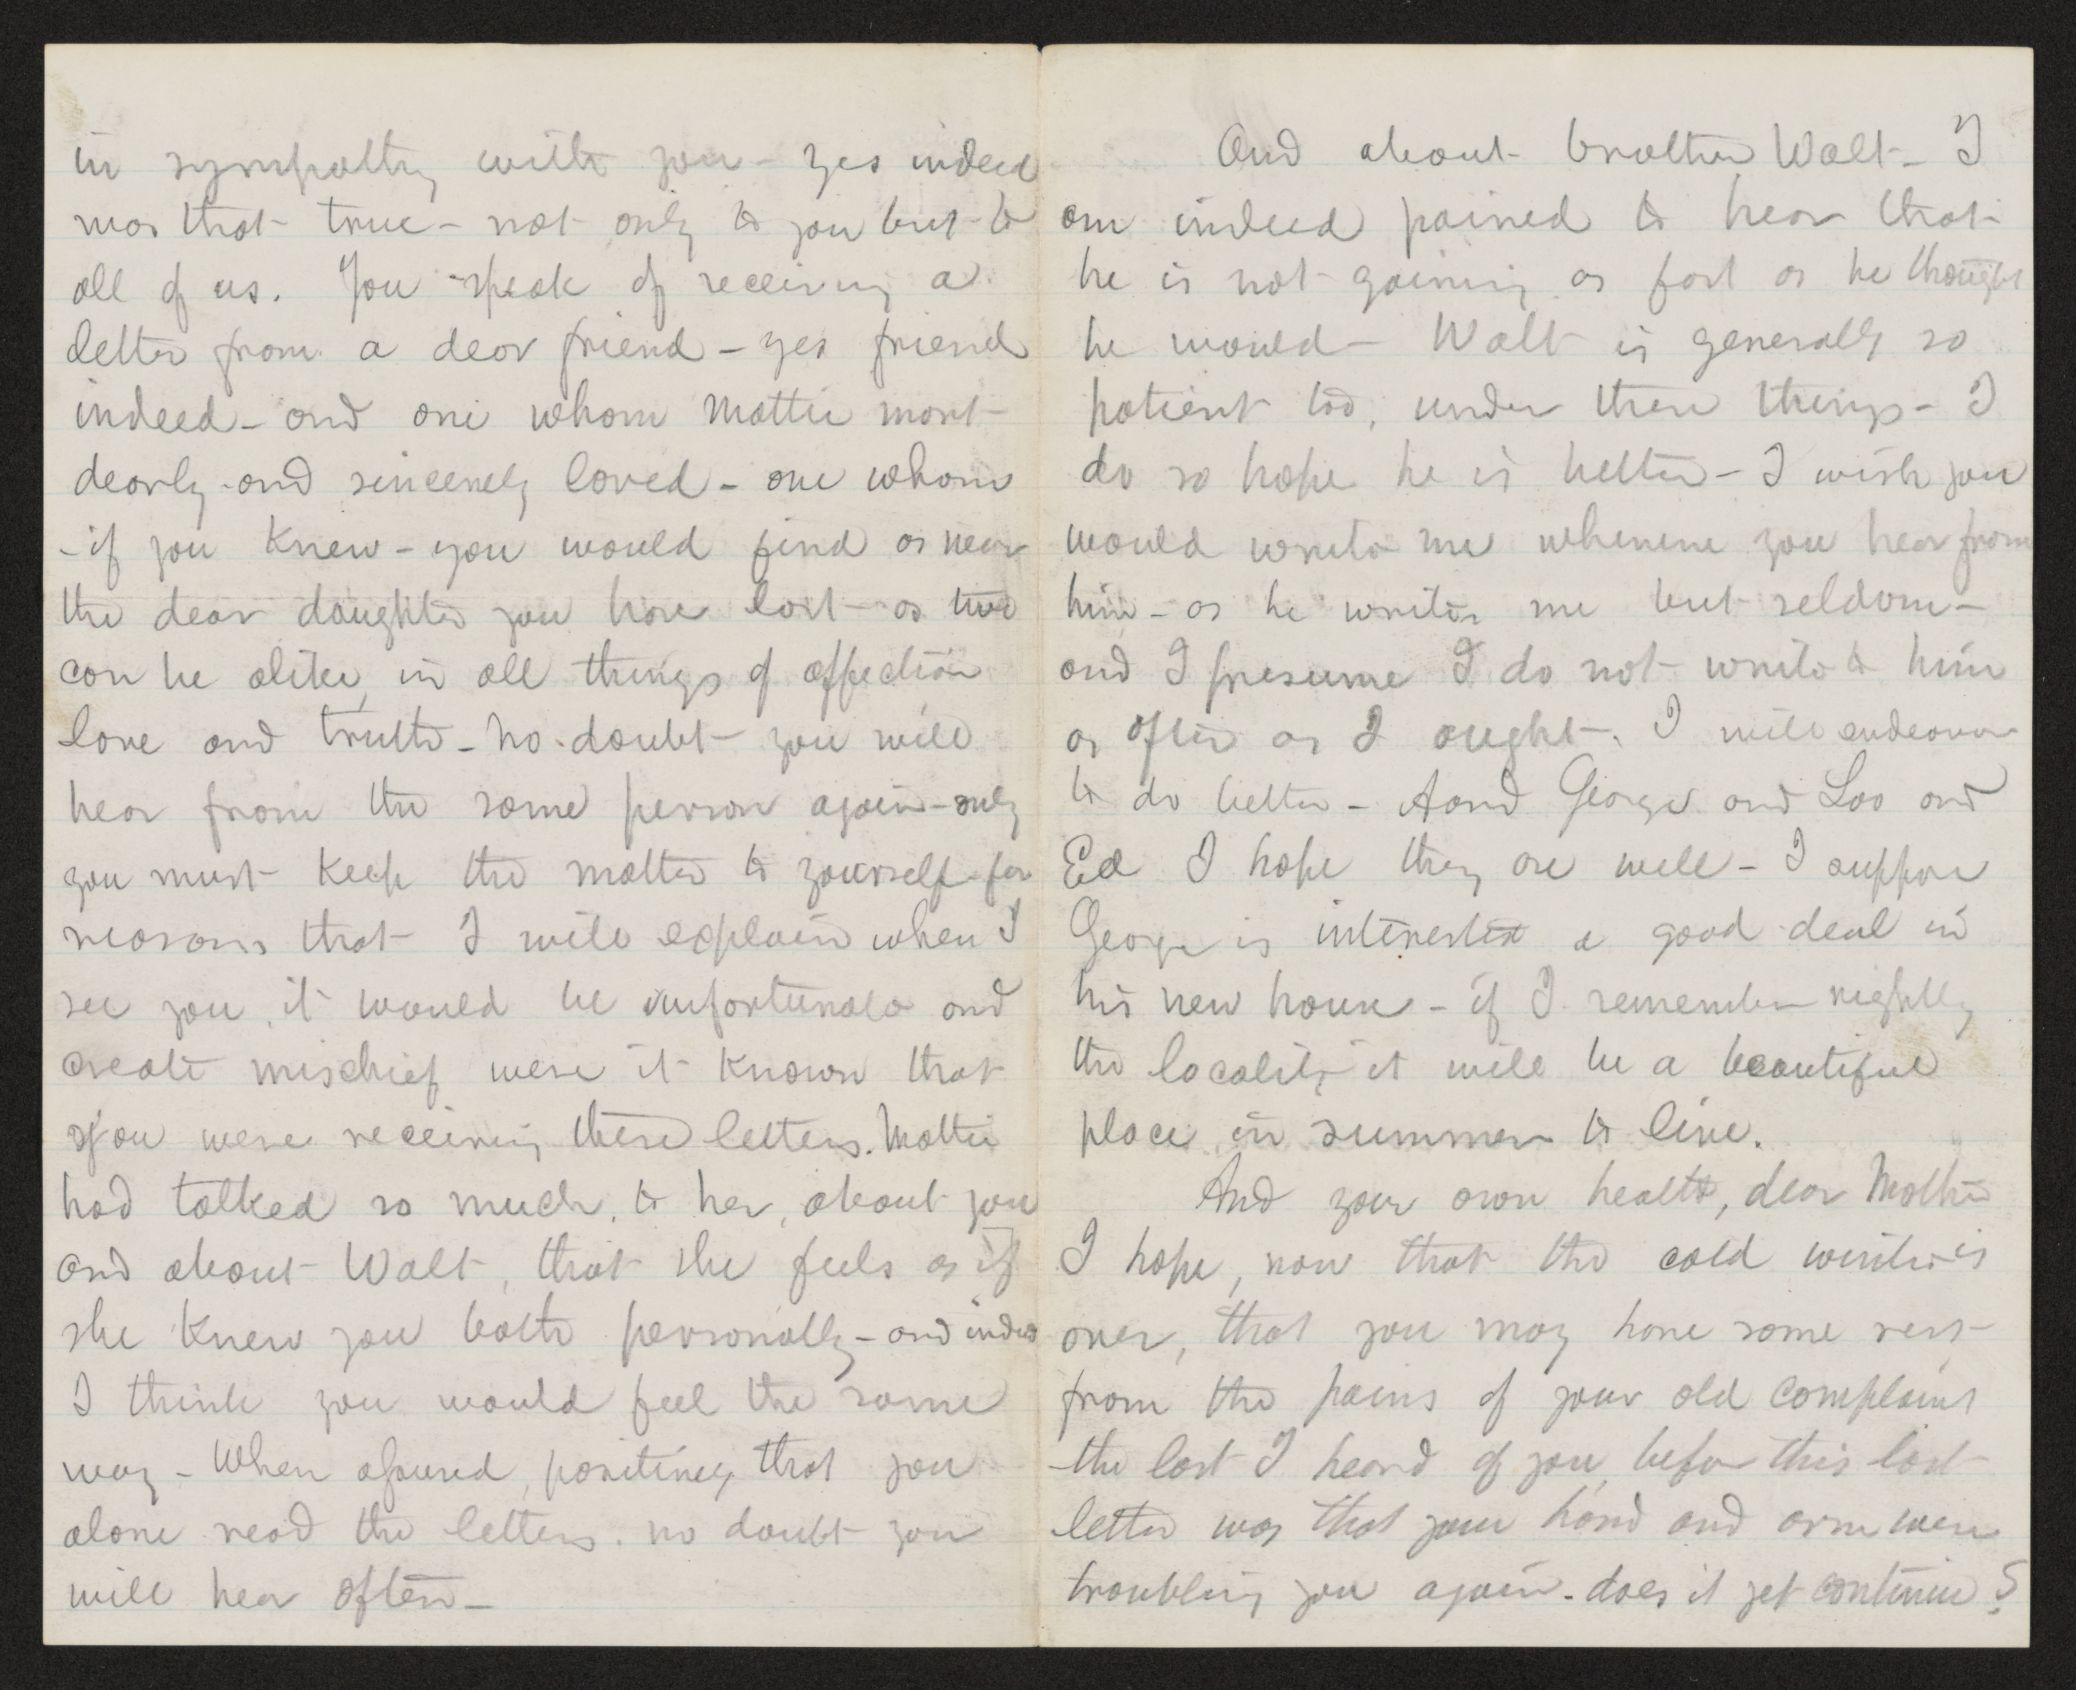 in sympathy with you - yes indeed
was that true - not only to you but to
all of us. You speak of receiving a
letter from a dear friend - yes friend
indeed - and one whom Mattie most
dearly and sincerely loved - one whom
- if you knew - you would find as near
the dear daughter you have lost as two
can be alike, in all things of affection
love and truth - no doubt you will
hear from the same person again - only
you must keep the matter to yourself for
reasons that I will explain when I
see you. it would be unfortunate and
create mischief were it known that
you were receiving these letters. Mattie
had talked so much, to her, about you
and about Walt, that she feels as if
she knew you both personally - and indeed
I think you would feel the same
way - When assured, positively that you
alone read the letters. no doubt you
will hear often -
And about brother Walt - I
am indeed pained to hear that
he is not gaining as fast as he thought
he would - Walt is generally so
patient too, under these things - I
do so hope he is better - I wish you
would write me whenever you hear from
him - as he writes me but seldom -
and I presume I do not write to him
as often as I ought. I will endeavor
to do better - Aand George and Loo and
Ed I hope they are well - I suppose
George is interested a good deal in
his new house - if I remember rightly
the locality it will be a beautiful
place in summer to live.
And your own health, dear Mother
I hope, now that the cold winter is
over, that you may have some rest
from the pains of your old complaint
the last I heard of you before this last
letter was that your hand and arm were
troubling you again - does it yet continue?